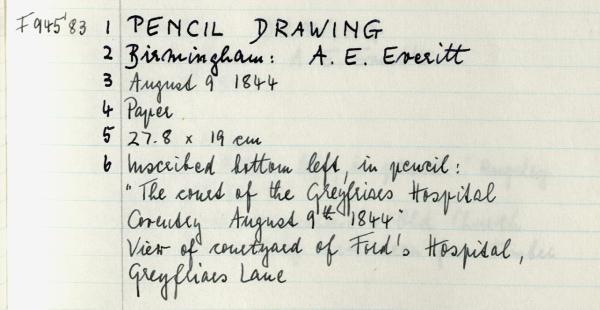 F945'83 1 PENCIL DRAWING
2 Birmingham: A. E. Everitt
3 August 9 1844
4 Paper
5 27.8 x 19 cm
6 Inscribed bottom left, in pencil:
"The court of the Greyfriars Hospital
Coventry August 9th 1844"
View of courtyard of Ford's Hospital,
Greyfriars Lane